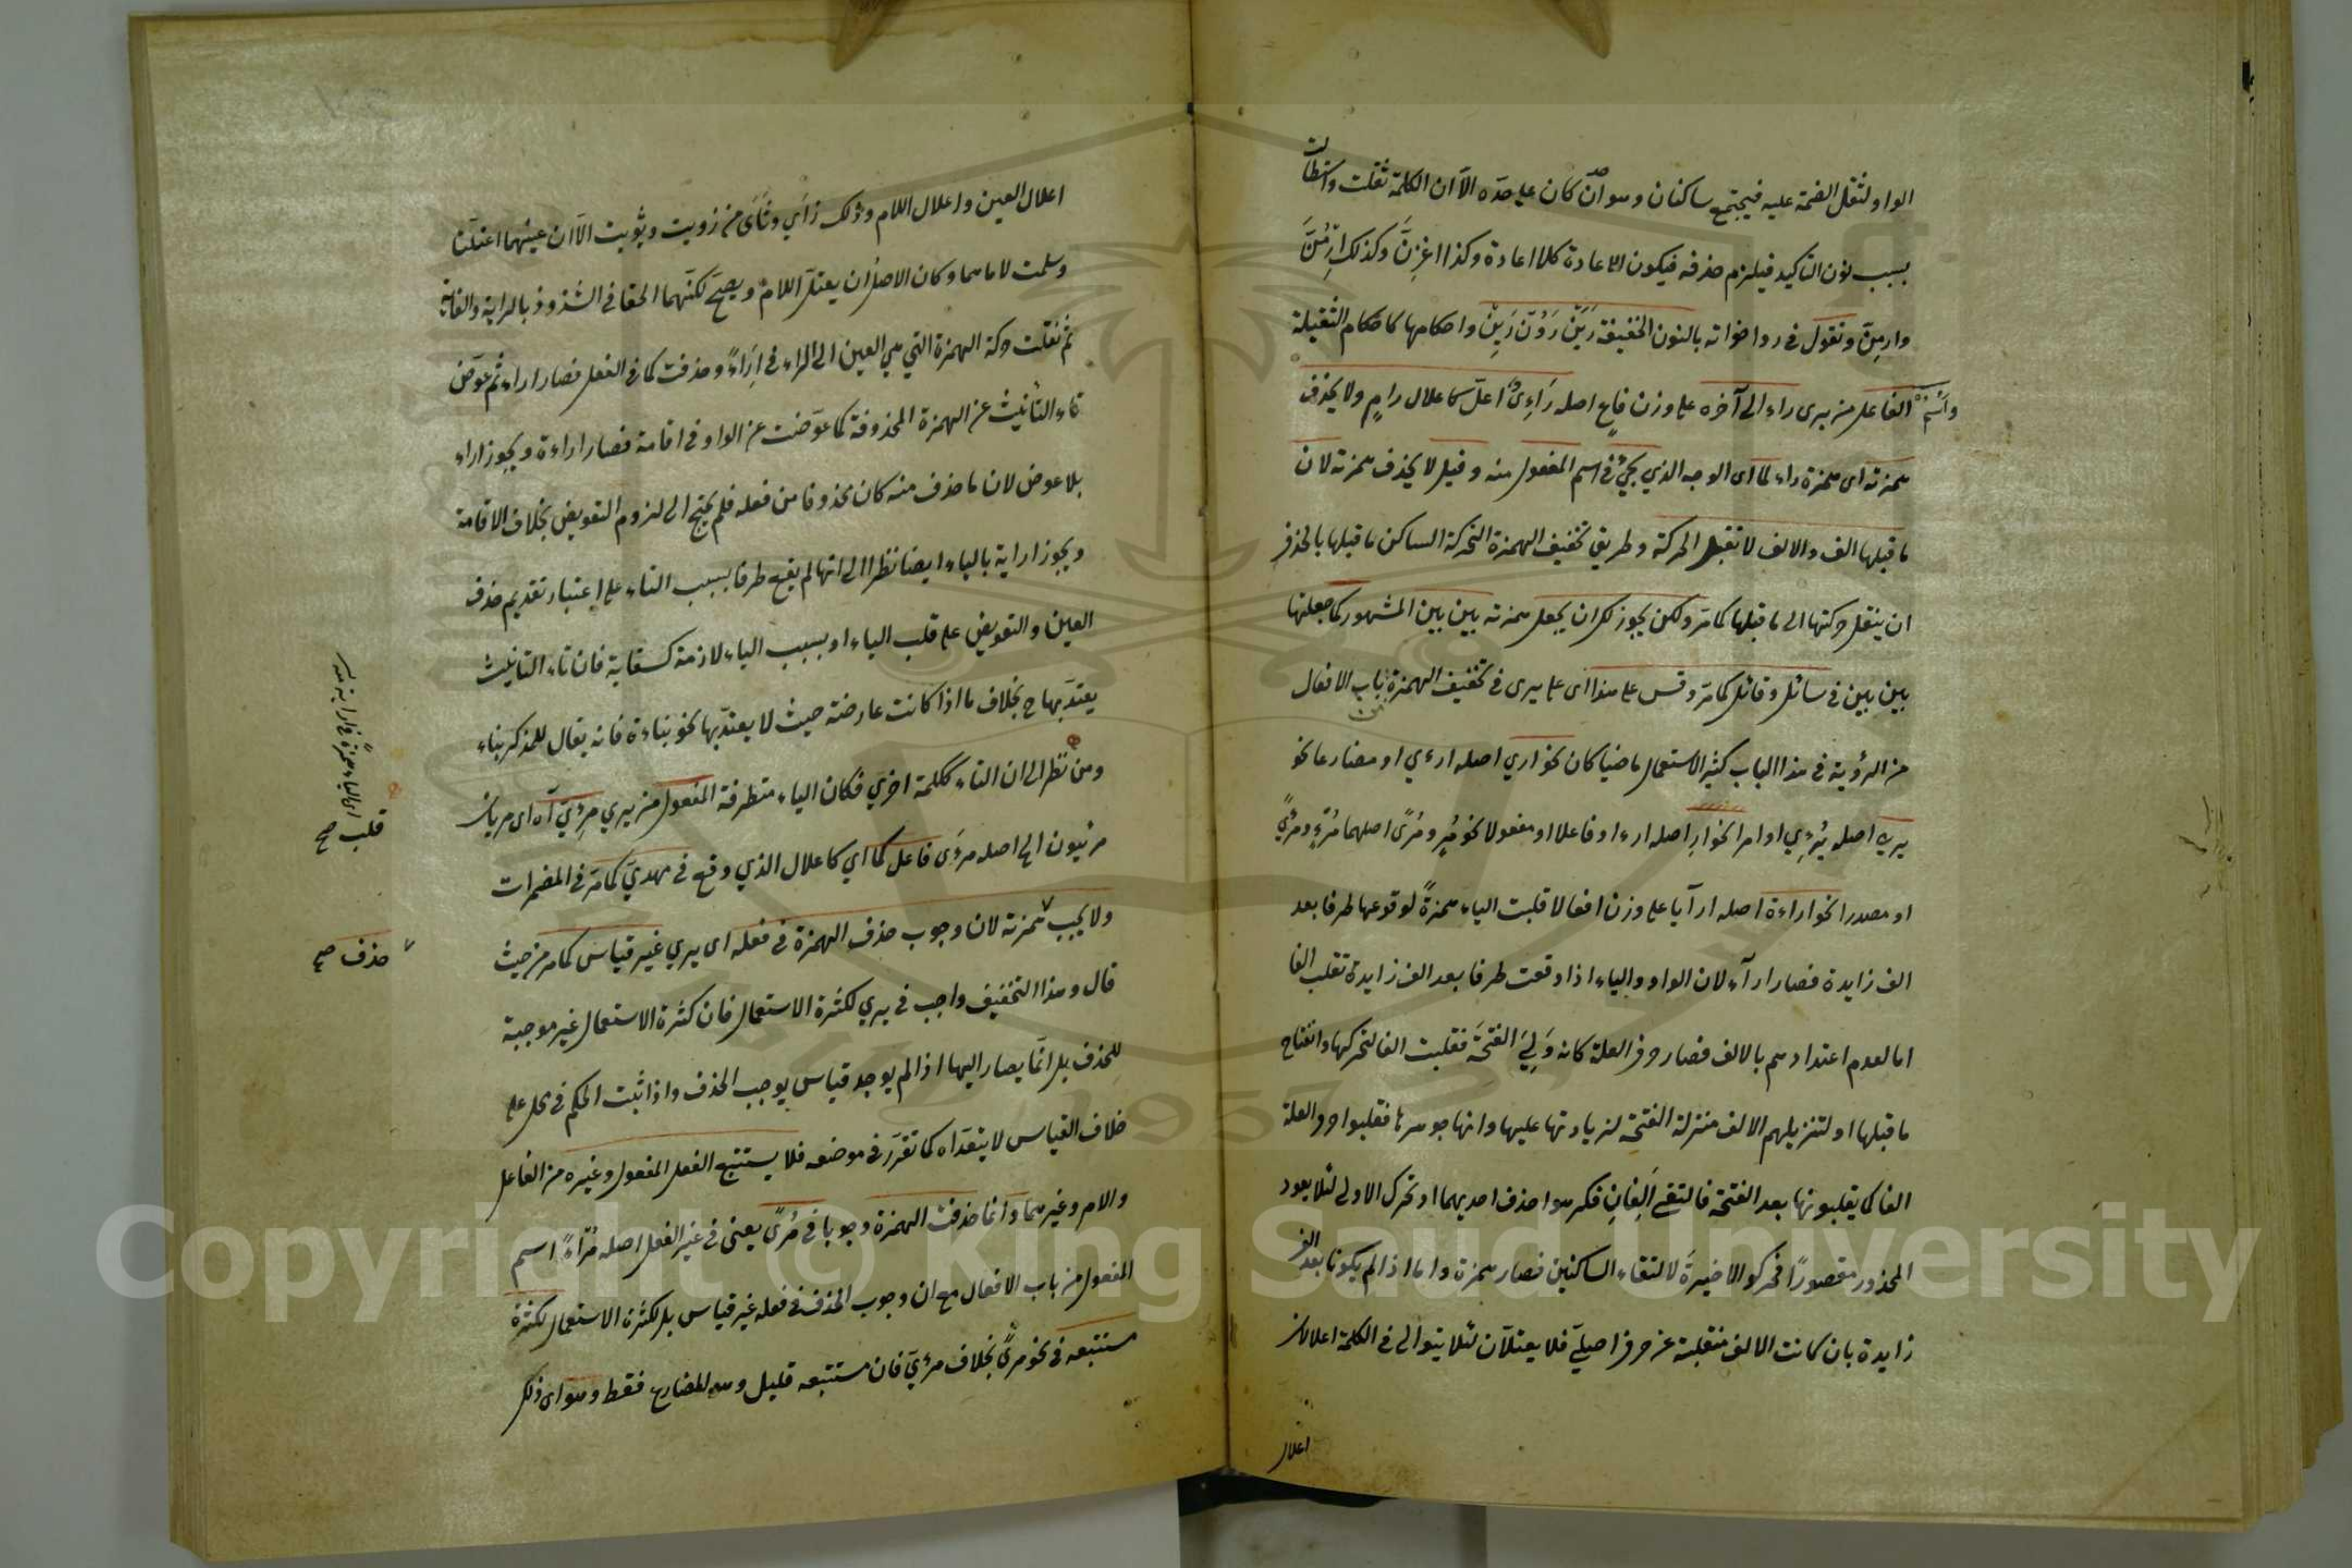 الواو لثقل الضمة عليه فيجتمع ساكنان وهو ان كان على حده الا ان الكلمة ثقلت واستطالت
بسبب نون التاكيد فيلزم حذفه فيكون الاعادة كلا اعادة وكذا اغزن وكذلك ارمن
وارمن وتقول فى ر واخواته بالنون الخفيفة رين رون رين واحكامها كاحكام الثقيلة
واسم الفاعل من يرى راء الى آخره على وزن فاع اصله رائى اعل كاعلال رام ولا يحذف
همزته اى همزة راء لما اى الوجه الذي يجئ فى اسم المفعول منه وقيل لا يحذف همزته لان
ما قبلها الف والالف لا تقبل الحركة وطريق تخفيف الهمزة المتحركة الساكن ما قبلها بالحذف
ان ينقل حركتها الى ما قبلها كما مر ولكن يجوز لك ان يجعل همزته بين بين المشهور كما جعلتها
بين بين فى سائل وقائل كما مر وقس على هذا اى على يرى فى تخفيف الهمزة باب الافعال
من الرؤية فى هذا الباب كثير الاستعمال ماضيا كان نحو اري اصله ارءي او مضارعا نحو
يري اصله يرءي او امرا نحو ار اصله ارء او فاعلا او مفعولا نحو مر ومرى اصلهما مرء ومرءى
او مصدرا نحو اراءة اصله ارآيا على وزن افعالا قلبت الياء همزة لوقوعها طرفا بعد
الف زايدة فصار ارآء لان الواو والياء اذا وقعت طرفا بعد الف زايدة تقلب الفا
اما لعدم اعتدادهم بالالف فصار حرف العلة كانه ولي الفتحة فقلبت الفا لتحركها وانفتاح
ما قبلها او لتنزيلهم الالف منزلة الفتحة لزيادتها عليها وانها جوهرها فقلبوا حرف العلة
الفا كما يقلبونها بعد الفتحة فالتقى الفان فكرهوا حذف احديهما او تحرك الاولى لئلا يعود
المحذور مقصورا فحركوا الاخيرة لالتقاء الساكنين فصار همزة واما اذا لم يكونا بعد الف
زايدة بان كانت الالف منقلبة عن حرف اصلي فلا يعتلان لئلا يتوالى فى الكلمة اعلالان
اعلال
اعلال العين واعلال اللام وذلك زاي وثاى من زويت وثويت الا ان عينهما اعتلتا
وسلمت لاماهما وكان الاصل ان يعتل اللام ويصح لكنهما الحقا فى الشذوذ بالراية والغاية
ثم نقلت حركة الهمزة التي هي العين الى الراء فى اراء وحذفت كما فى الفعل فصار اراء ثم عوض
تاء التانيث عن الهمزة المحذوفة كما عوضت عن الواو فى اقامة فصار اراءة ويجوز اراء
بلا عوض لان ما حذف منه كان محذوفا من فعله فلم يحتج الى لزوم التعويض بخلاف الاقامة
ويجوز اراية بالياء ايضا نظرا الى انها لم يقع طرفا بسبب التاء على اعتبار تقديم حذف
العين والتعويض على قلب الياء او بسبب الياء لازمة كسقاية فان تاء التانيث
يعتد بها ح بخلاف ما اذا كانت عارضة حيث لا يعتد بها نحو بناءة فانه يقال للمذكر بناء
ومن نظر الى ان التاء ككلمة اخرى فكان الياء متطرفة المفعول من يري مرءي آه اى مريان
مرئيون الخ اصله مرءى فاعل كما اي كاعلال الذي وقع فى مهدي كما مر فى المضمرات
ولا يجب همزته لان وجوب حذف الهمزة فى فعله اى يري غير قياس كما مر من حيث
قال وهذا التخفيف واجب فى يري لكثرة الاستعمال فان كثرة الاستعمال غير موجبة
للحذف بل انما يصار اليها اذا لم يوجد قياس يوجب الحذف واذا ثبت الحكم فى محل على
خلاف القياس لا يتعداه كما تقرر فى موضعه فلا يستتبع الفعل المفعول وغيره من الفاعل
والامر وغيرهما وانما حذفت الهمزة وجوبا فى مرى يعنى فى غير الفعل اصله مرأى اسم
المفعول من باب الافعال مع ان وجوب الحذف فى فعله غير قياس بل لكثرة الاستعمال لكثرة
مستتبعه فى نحو مرى بخلاف مرئي فان مستتبعه قليل وهو المضارع فقط وهو اى ذلك
قلب صح
حذف صح
Copyright © King Saud University
1957